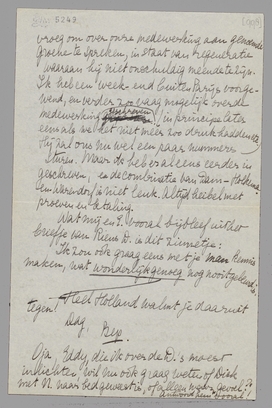 5242.
vroeg om over onze medewerking aan
Groene te spreken, in staat van regeneratie
waaraan hij niet onschuldig meende te zijn.
Ik heb een week-end buiten Parijs voorge-
wend, en verder zoo vaag mogelijk over de
medewerking in principe later
eens als we het niet meer zoo druk hadden
Hij zal ons nu wel een paar nummers
sturen. Maar de beb er al eens eerder in
geschreven, en de combinatie van Dam-
en Warendorf is niet leuk. Altijd heibel met
proeven en betaling.
Wat mij en E. vooral bijbleef uit het
briefje van Riens D. is dit zinnetje:
Ik zou ook graag eens met je man kennis
maken, wat wonderlijk genoeg nog nooit gelukt is.
Heel Holland walmt je daaruit
tegen!
Dag,
Bep.
Oja, Eddy, die ik over de D.'s moest
inlichten wil nu ook graag weten of Dirk
met N. naar bed geweest is, of alleen maar gevoel.?
Antwoord hem vooral.